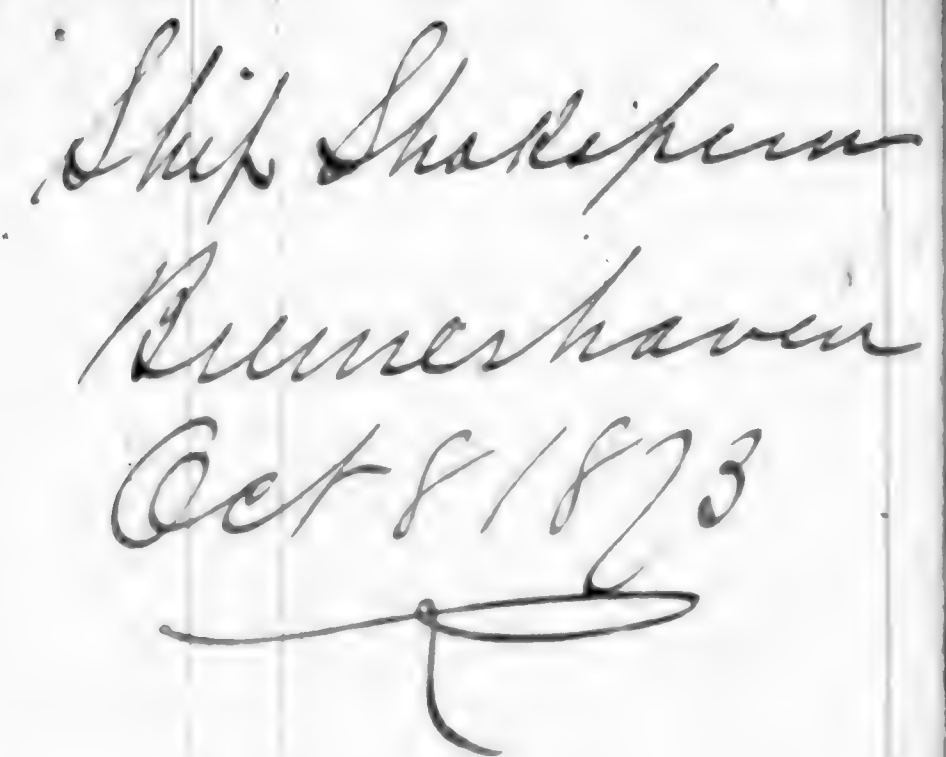 Ship Shakespeare
Bremerhaven
Oct 8 1873